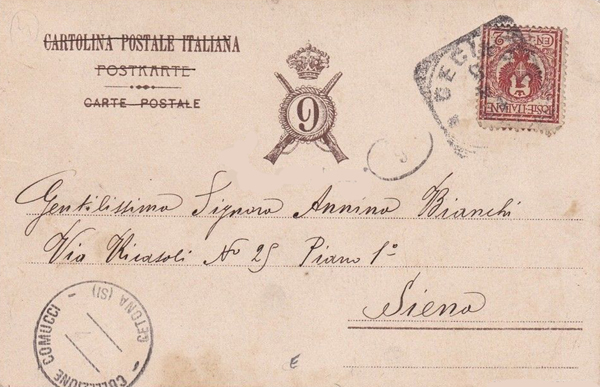 CARTOLINA POSTALE ITALIANA
POSTKARTE
CARTE POSTALE
9
Gentilissima Signora Annina Bianchi
Via Ricasoli No 25 Piano 1º
Siena
COLLEZIONE COMUCCI - CETONA (SI) -
E